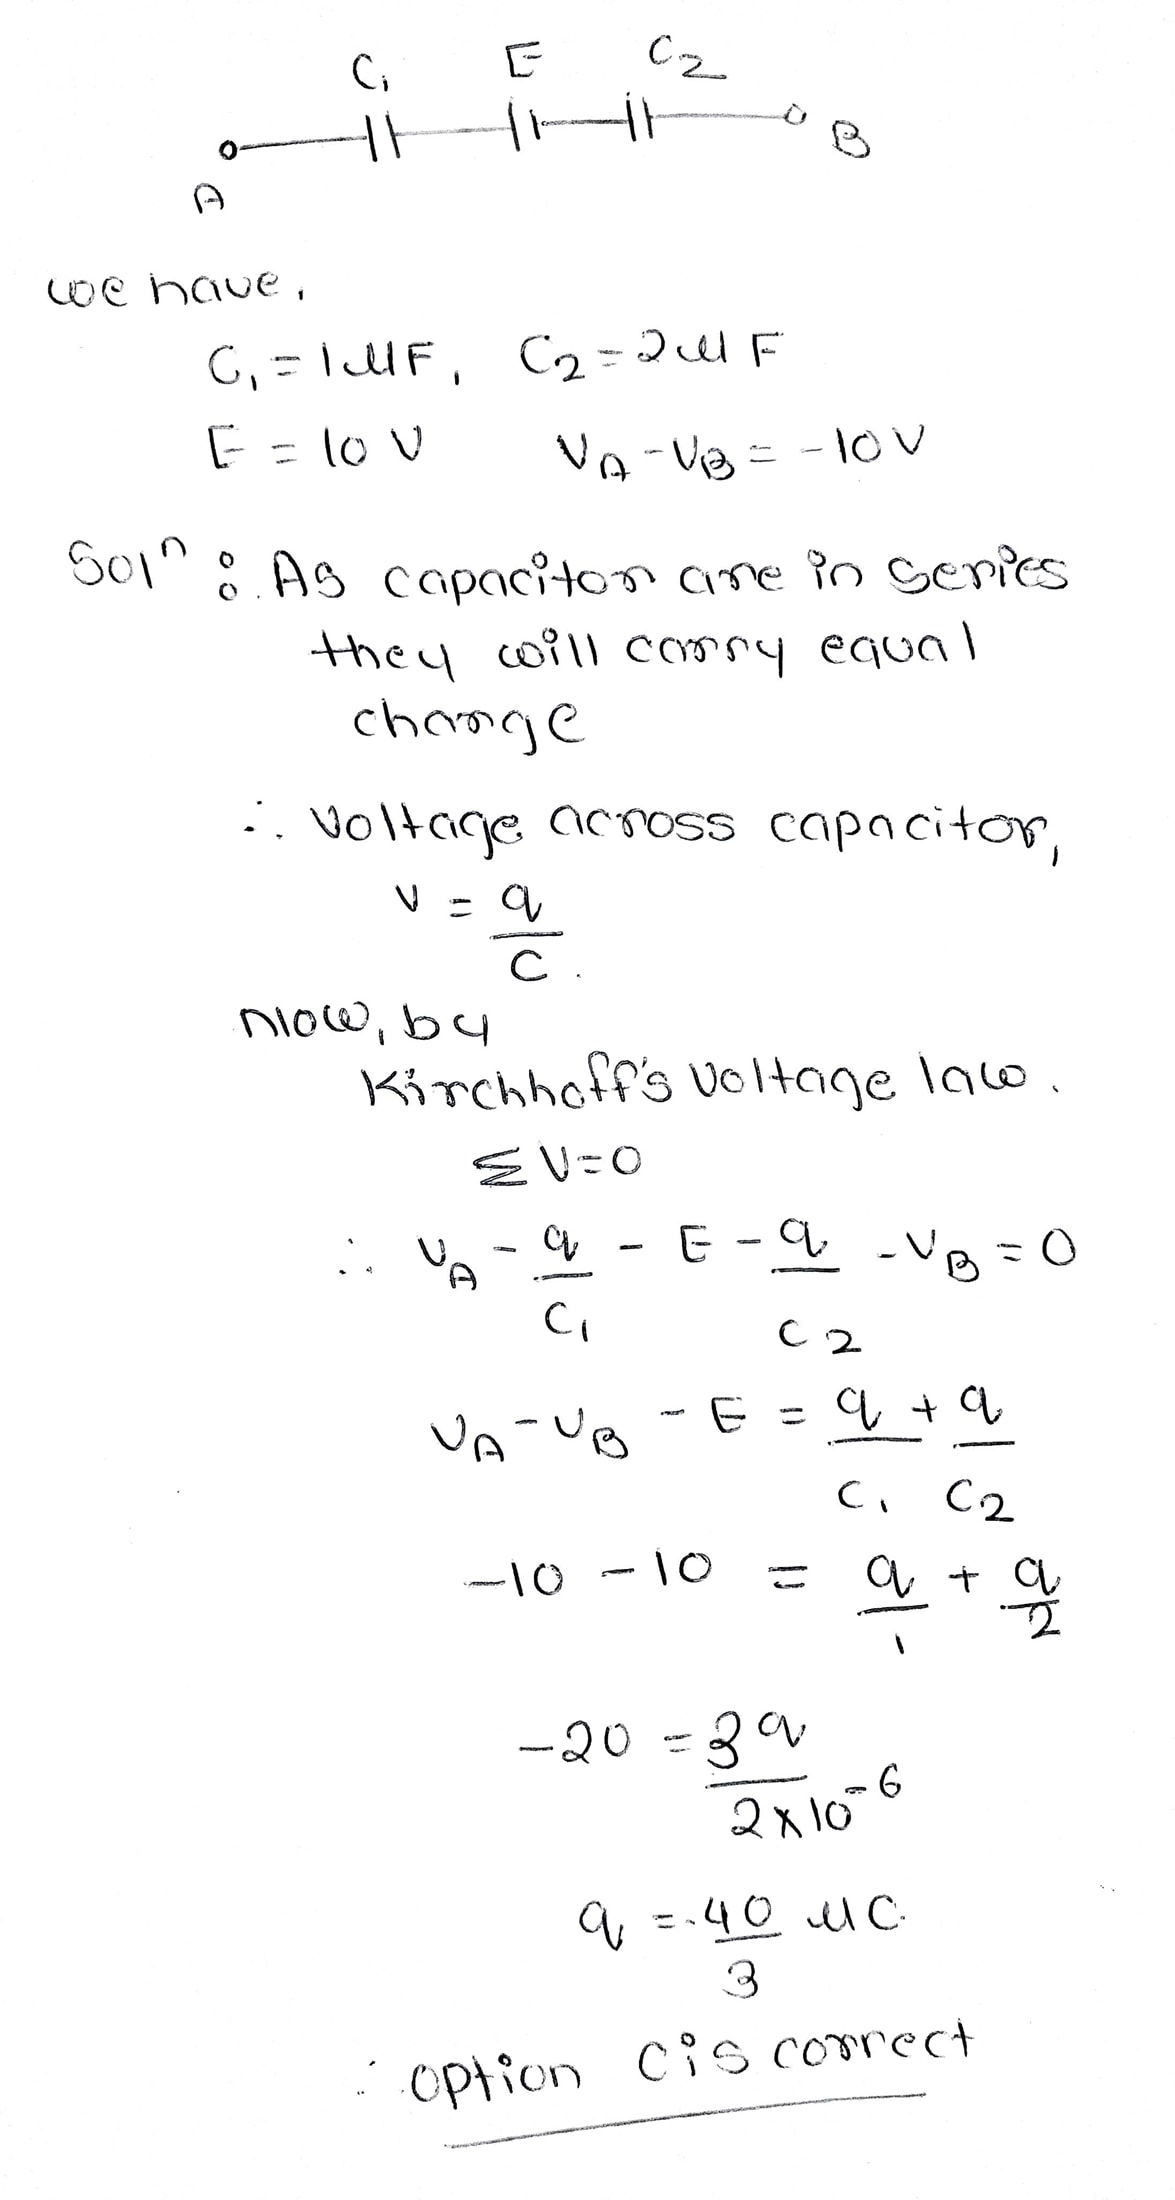 C₁ E C₂
A B
we have,
C₁ = 1 μF, C₂ = 2 μF
E = 10 V V_A - V_B = -10 V
Solⁿ : As capacitor are in series
they will carry equal
charge
∴ voltage across capacitor,
v = q/C.
Now, by
Kirchhoff's voltage law.
Σ V = 0
∴ V_A - q/C₁ - E - q/C₂ - V_B = 0
V_A - V_B - E = q/C₁ + q/C₂
-10 - 10 = q/1 + q/2
-20 = 3q/2×10⁻⁶
q = -40/3 μC.
∴ option C is correct